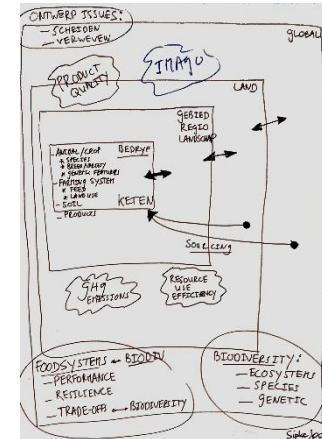 ONTWERP ISSUES:
— SCHEIDEN
— VERWEVEN
GLOBAL
PRODUCT QUALITY
IMAGO
LAND
GEBIED
REGIO
LANDSCHAP
— ANIMAL/CROP
BEDRYF
* SPECIES
* BREED/VARIETY
* GENETIC FEATURES
— FARMING SYSTEM
* FEED
* LAND USE
— SOIL
KETEN
— PRODUCTS
SOURCING
GHG EMISSIONS
RESOURCE USE EFFICIENCY
FOODSYSTEMS ← BIODIV
— PERFORMANCE
— RESILIENCE
— TRADE-OFFS ← BIODIVERSITY
BIODIVERSITY:
— ECOSYSTEMS
— SPECIES
— GENETIC